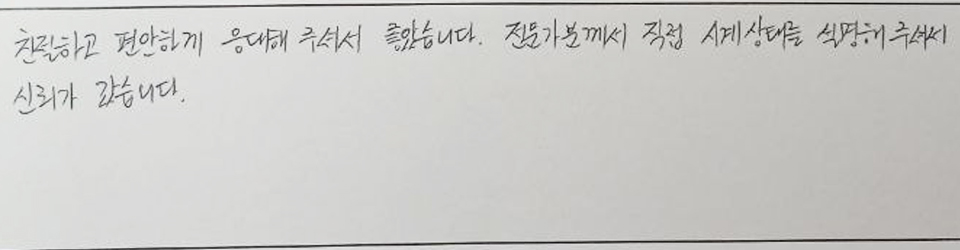 친절하고 편안하게 응대해 주셔서 좋았습니다. 전문가분께서 직접 시계상태를 설명해주셔서
신뢰가 갔습니다.